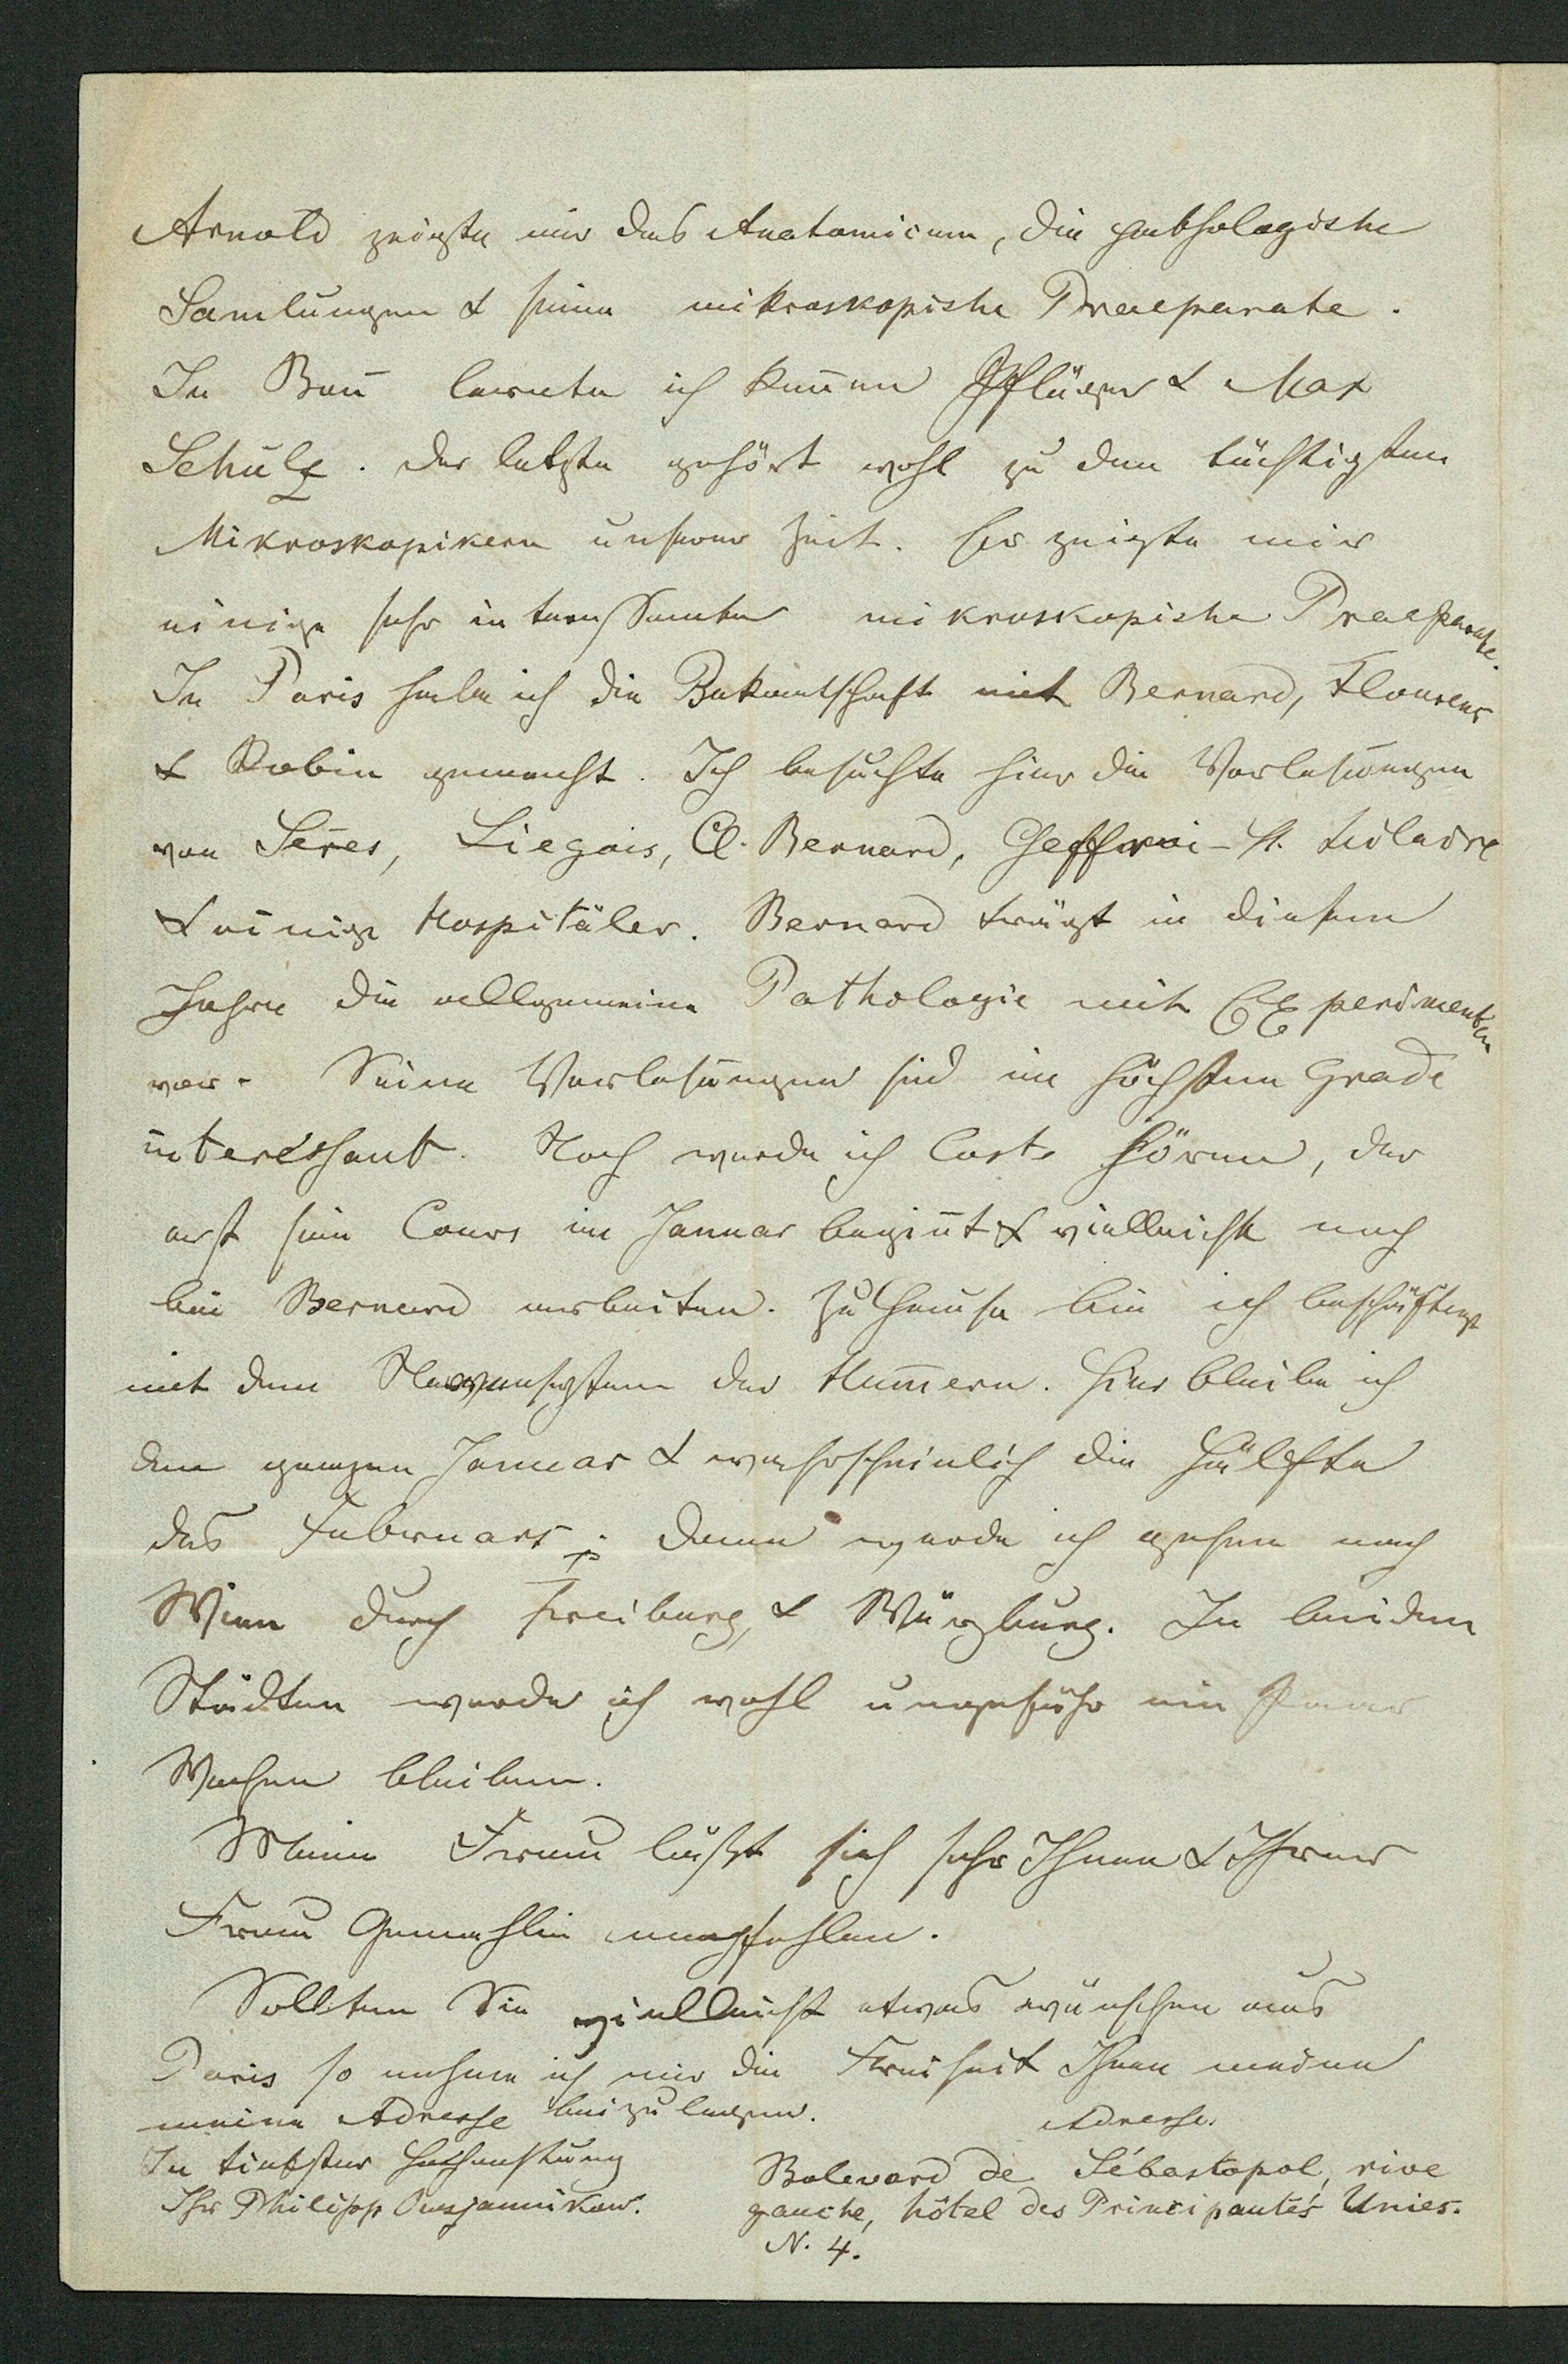 Arnold zeigte mir das Anatomicum, die pathologische
Samlungen & seine mikroskopische Praeparate.
In Bon̄ lernte ich ken̄en Pflüger & Max
Schulz. Der letzte gehört wohl zu den tüchtigsten
Mikroskopikern unserer Zeit. Er zeigte mir
einige sehr interessante mikroskopische Praeparate.
In Paris habe ich die Bekan̄tschaft mit Bernard, Flourens
& Robin gemacht. Ich besuchte hier die Vorlesungen
von Ser̄es, Liegois, Cl. Bernard, Geffroi-St. Hilaire
& einige Hospitäler. Bernard trägt in diesem
Jahre die allgemeine Pathologie mit Experimenten
vor. Seine Vorlesungen sind im höchsten Grade
interessant. Noch werde ich Coste hören, der
erst sein Cours im Januar begin̄t & vielleicht noch
bei Bernard arbeiten. Zu Hause bin ich beschäftigt
mit dem Nervensystem der Hum̄ern. Hier bleibe ich
den ganzen Januar & wahrscheinlich die Hälfte
des Februars; dann werde ich gehen nach
Wien durch Freiburg, & Würzburg. In beiden
Städten werde ich wohl ungefähr ein Paar
Wochen bleiben.
Meine Frau läßt sich sehr Ihnen & Ihrer
Frau Gemahlin empfehlen.
Sollten Sie vielleicht etwas wünschen aus
Paris so nehme ich mir die Freiheit Ihnen meine
meine Adresse beizulegen.
In tiefster Hochachtung
Ihr Philipp Owsjannikow.
Adresse.
Bolevard de Sébastopol, rive
gauche, hôtel des Principautés Unies.
N. 4.